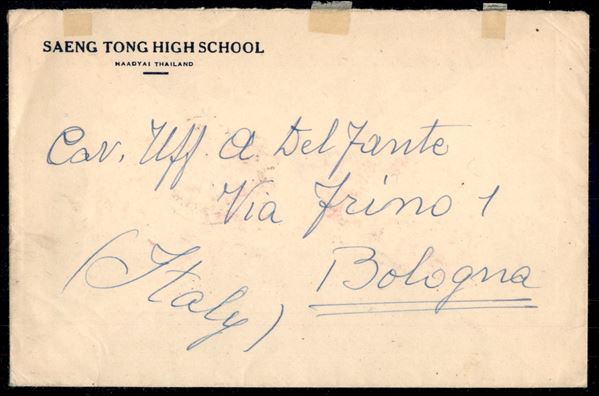 SAENG TONG HIGH SCHOOL
HAADYAI THAILAND
Cav. Uff. A. Del Fante
Via Frino 1
Bologna
(Italy)